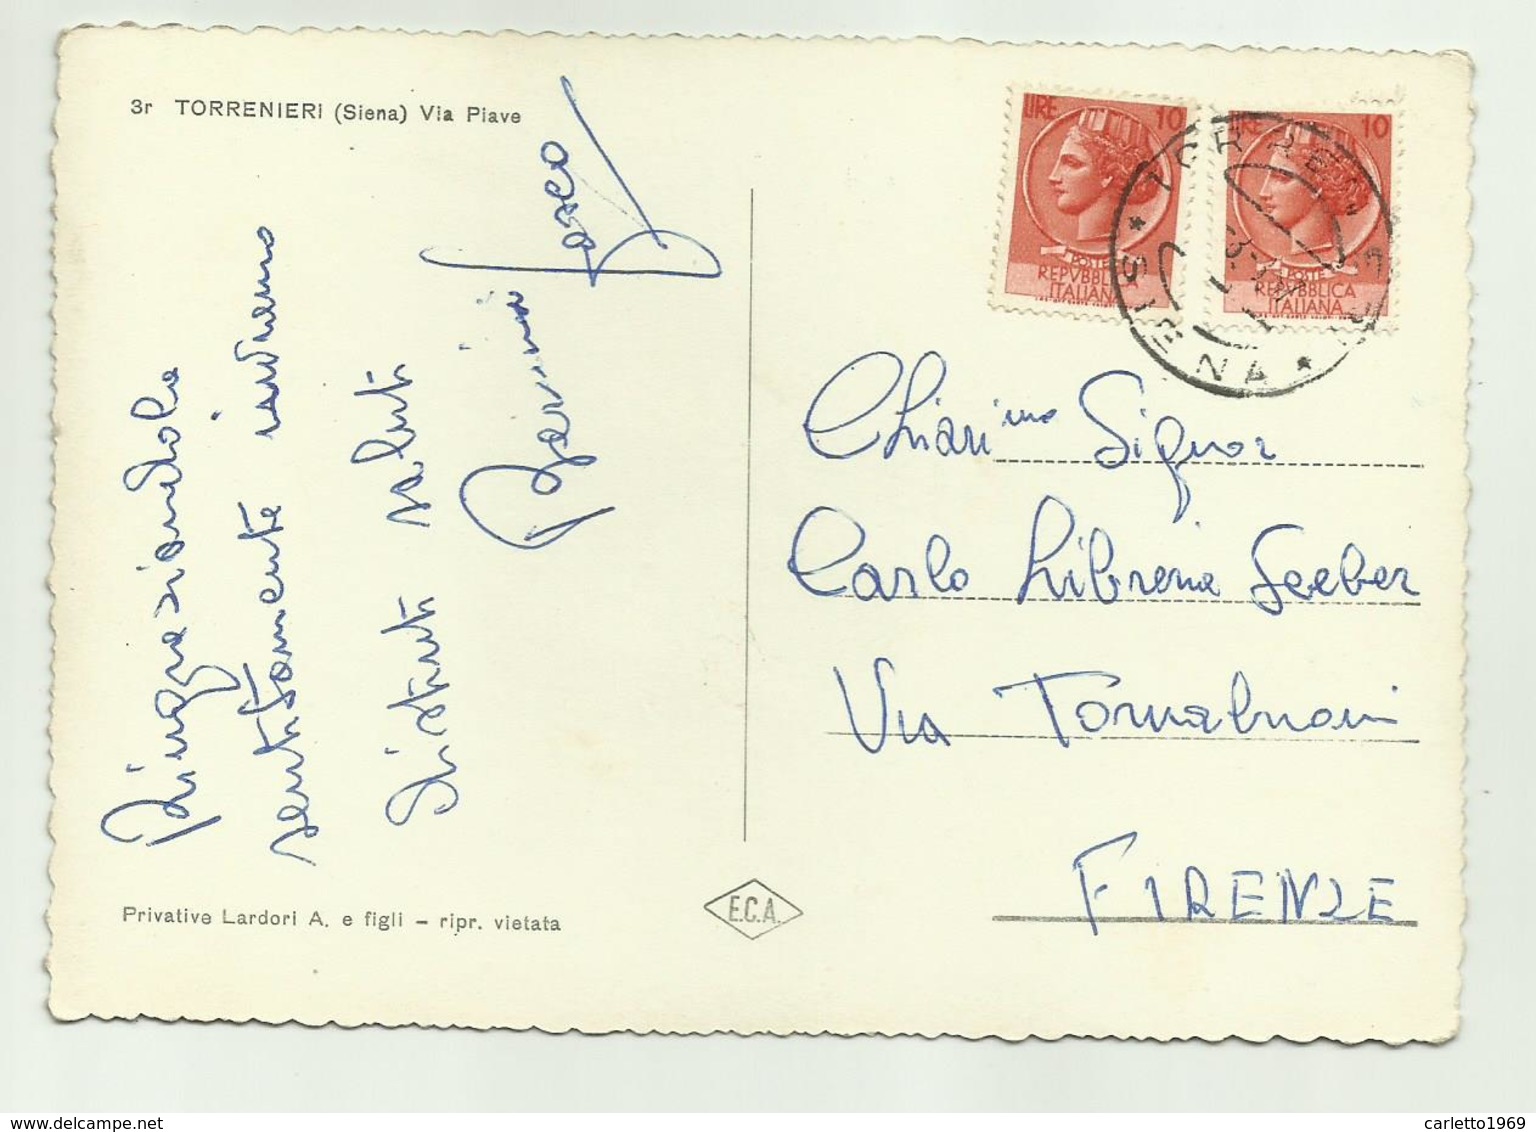 3r TORRENIERI (Siena) Via Piave
Ringraziandola
sentitamente inviamo
distinti saluti
Privative Lardori A. e figli - ripr. vietata
E.C.A.
LIRE 10
POSTE
REPVBBLICA
ITALIANA
LIRE 10
POSTE
REPVBBLICA
ITALIANA
* SIENA *
Chiari mo Signor
Carlo Libreria Seeber
Via Tornabuoni
FIRENZE
carletto1969
delcampe.net